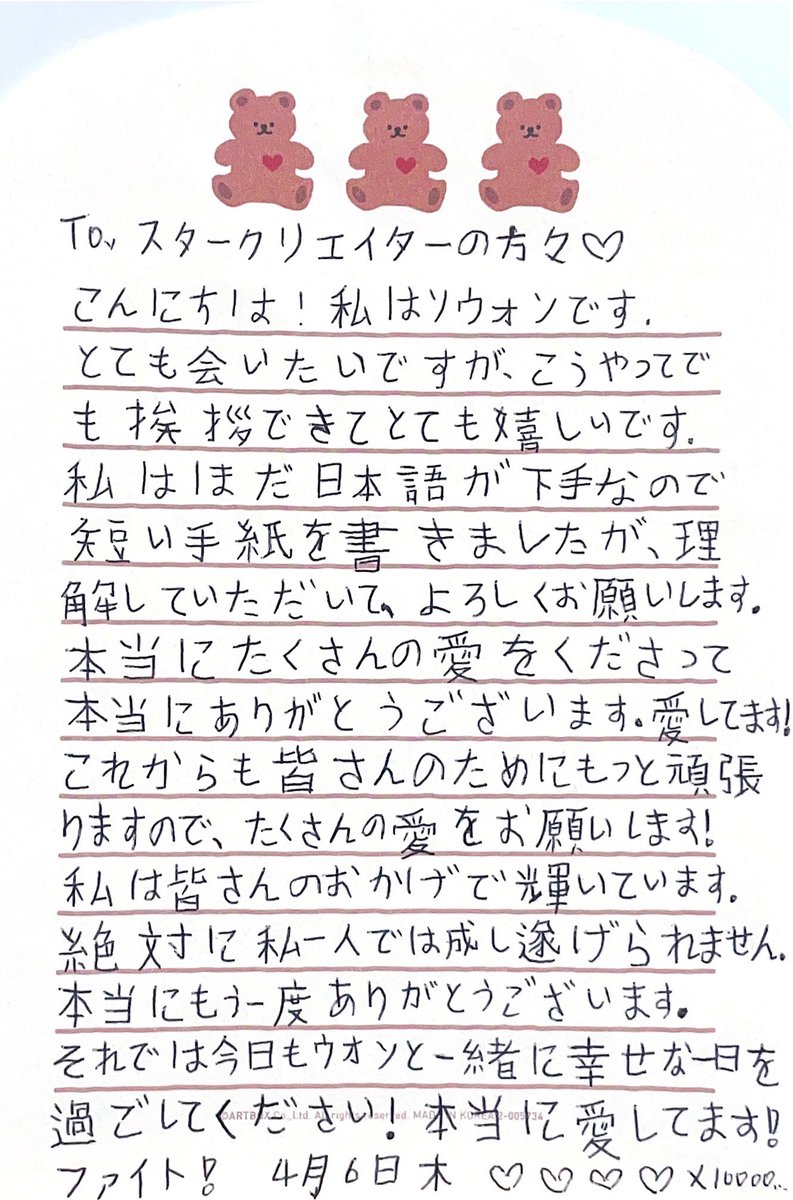 To. スタークリエイターの方々♡
こんにちは！私はソウォンです.
とても会いたいですが、こうやってで
も挨拶できてとても嬉しいです.
私はまだ日本語が下手なので
短い手紙を書きましたが、理
解していただいて、よろしくお願いします.
本当にたくさんの愛をくださって
本当にありがとうございます.愛してます!
これからも皆さんのためにもっと頑張
りますので、たくさんの愛をお願いします!
私は皆さんのおかげで輝いています.
絶対に私一人では成し遂げられません.
本当にもう一度ありがとうございます.
それでは今日もウオンと一緒に幸せな一日を
過ごしてください! 本当に愛してます!
ARTBOX Co.,Ltd. All rights reserved. MADE IN KOREA
ファイト! 4月6日木 ♡♡♡♡×10000...